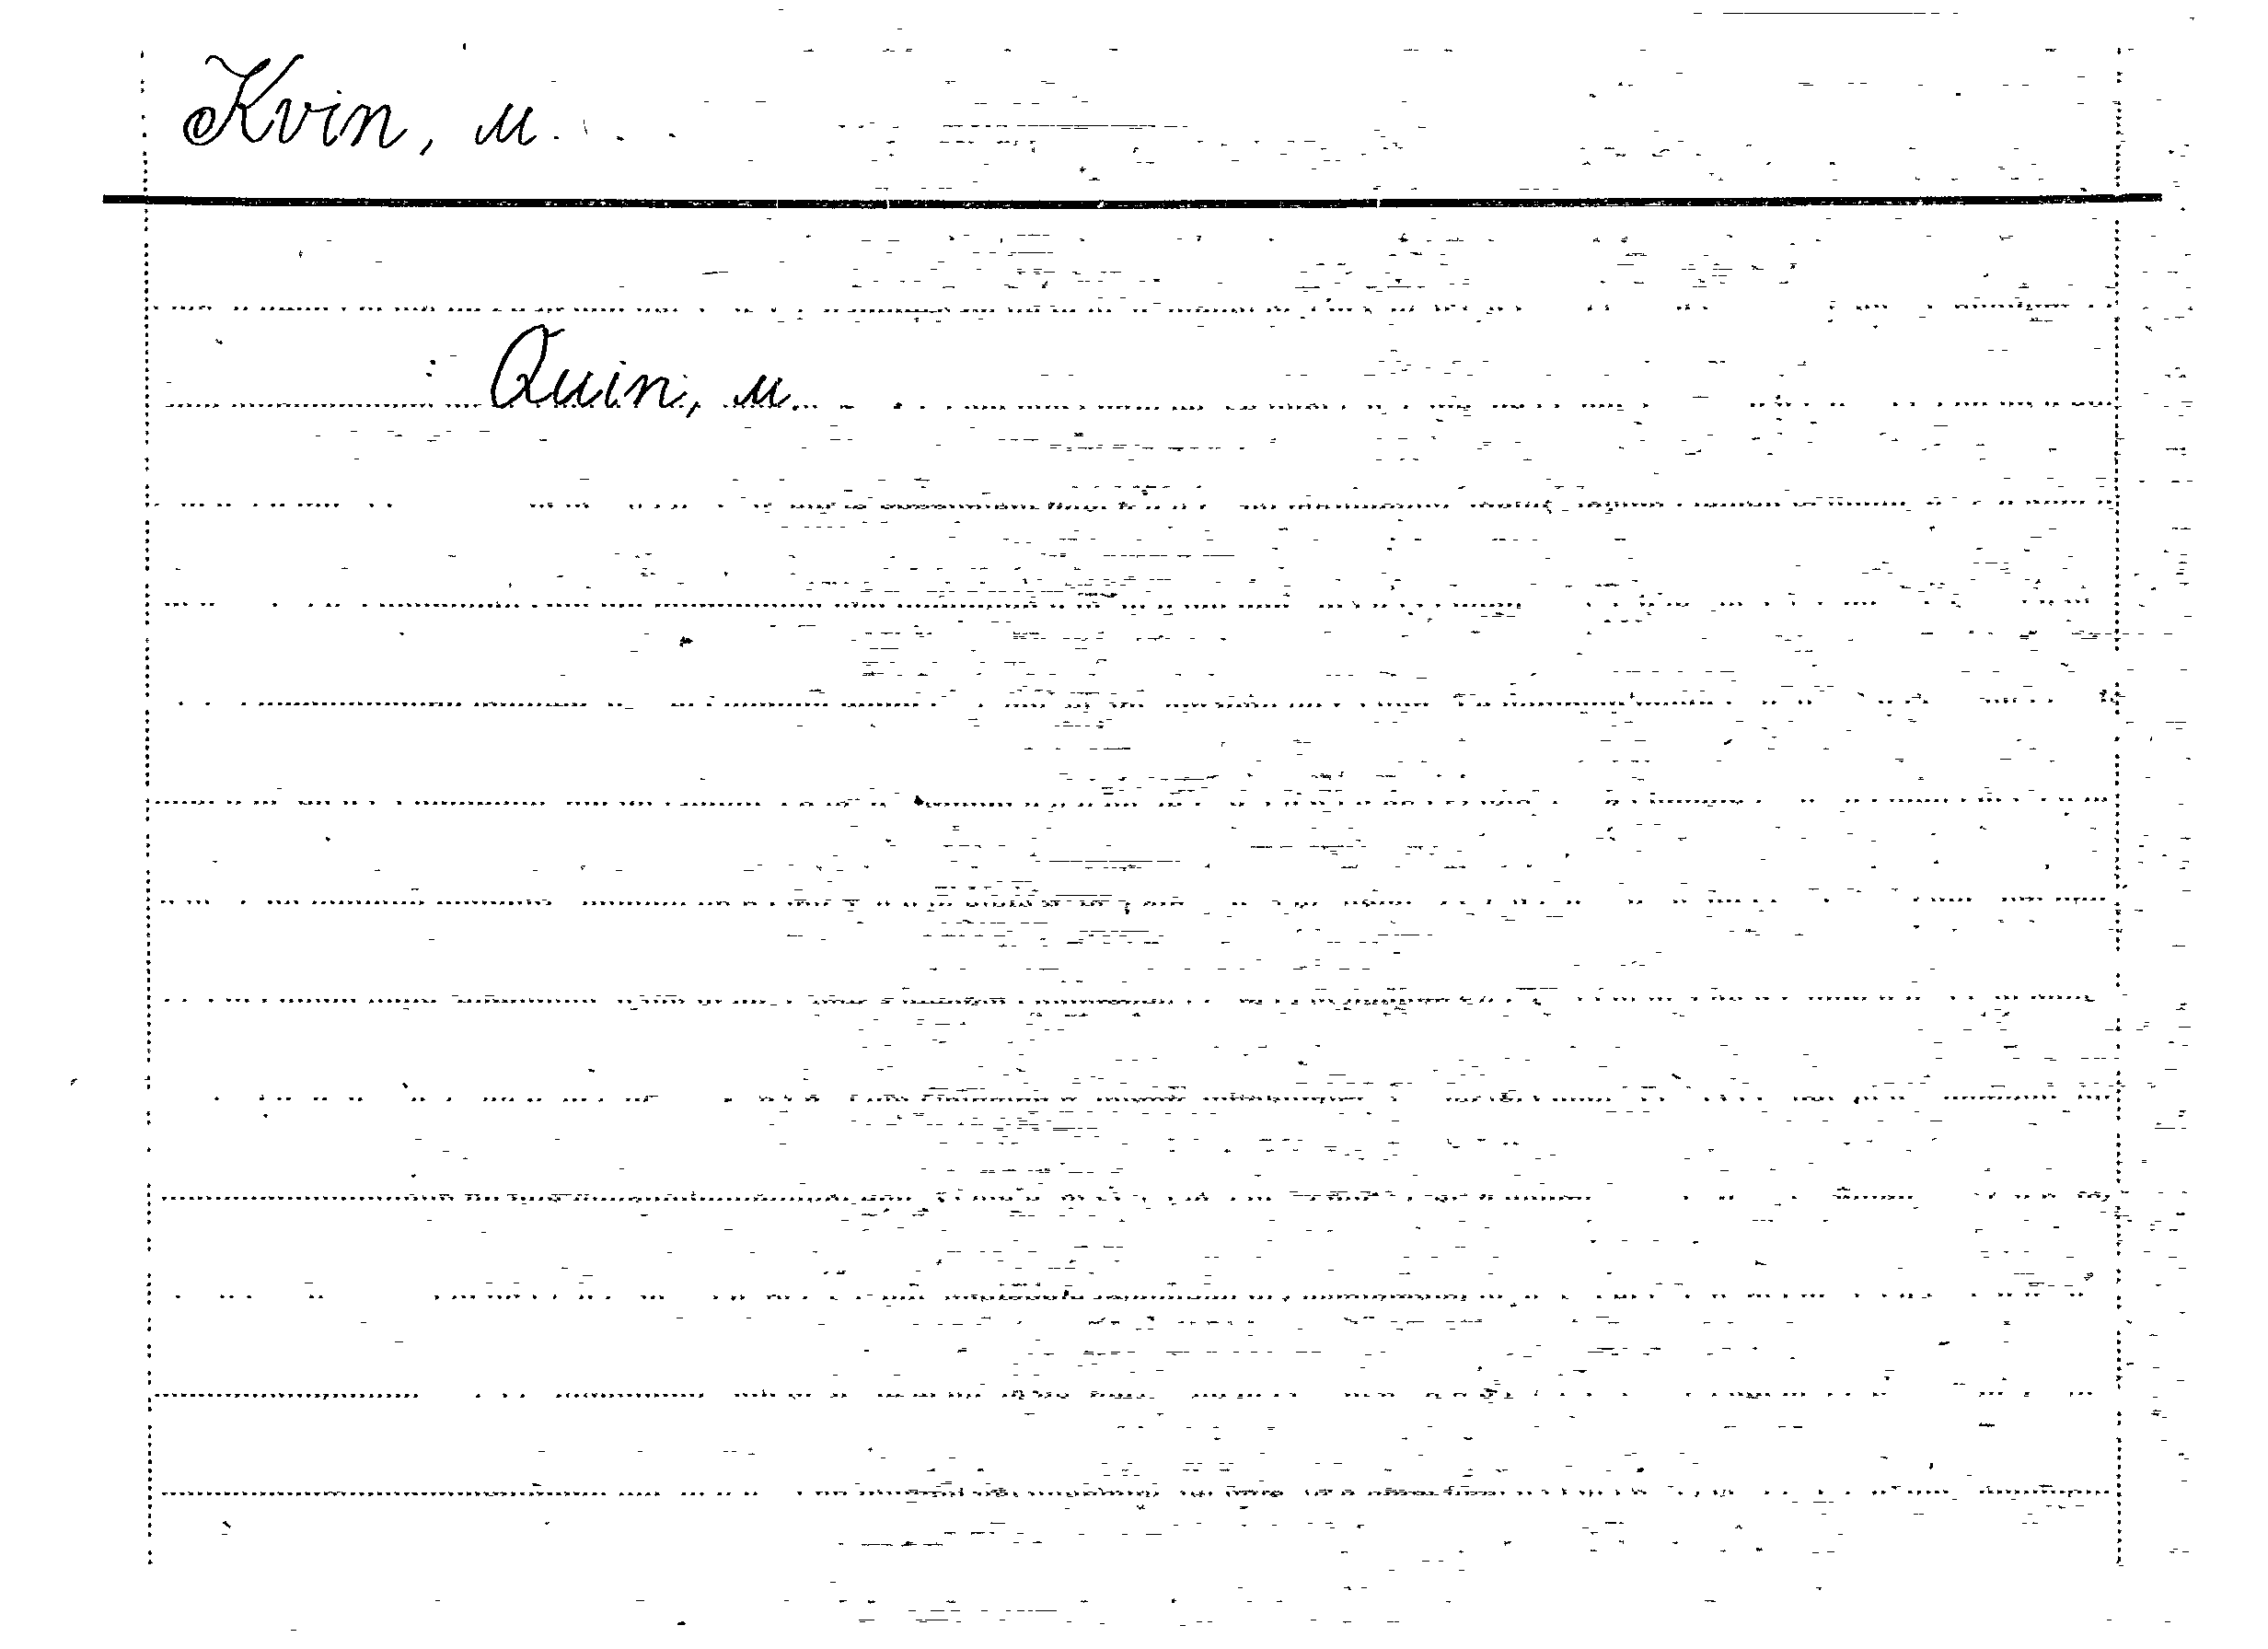 Kvin, M.
Quin, M.